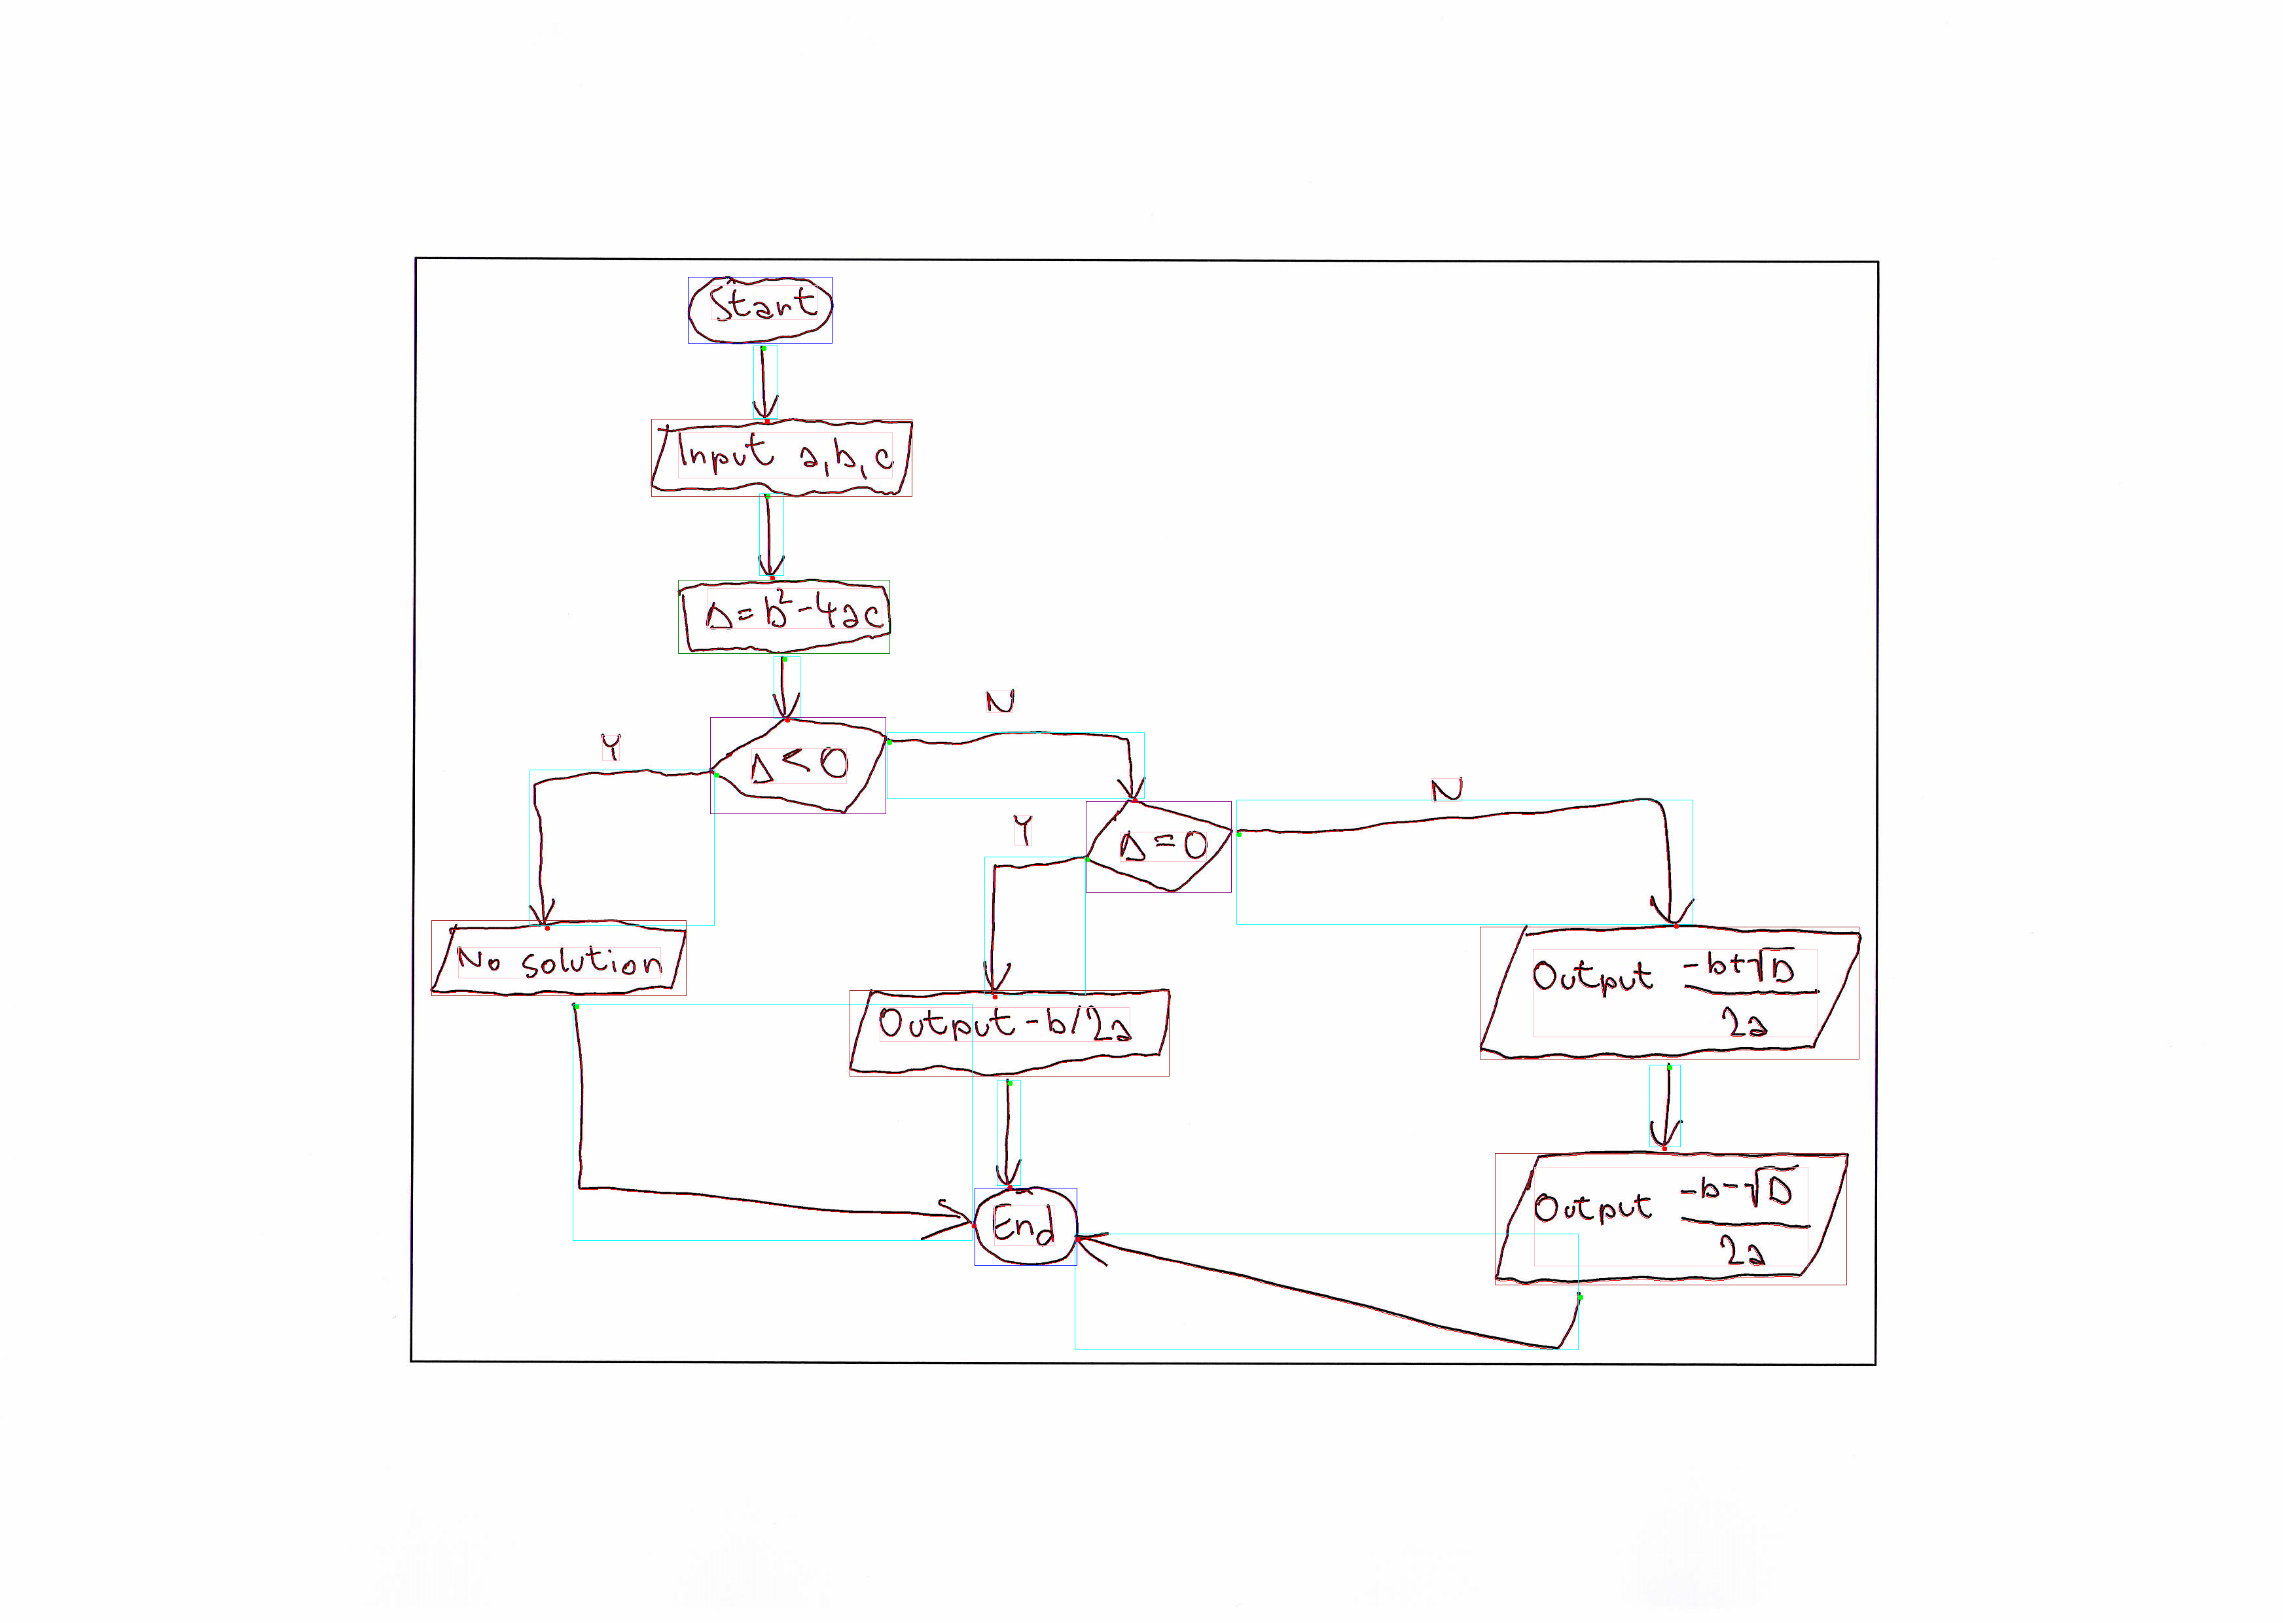 Start
Input a,b,c
Δ=b²-4ac
N
Y
Δ<0
N
Y
Δ=0
No solution
Output -b+√D
2a
Output -b/2a
Output -b-√D
2a
End